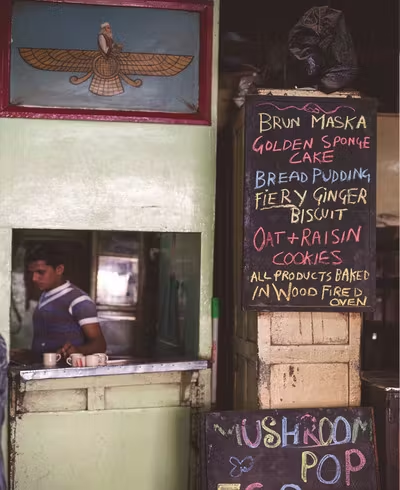 BRUN MASKA
GOLDEN SPONGE
CAKE
BREAD PUDDING
FIERY GINGER
BISCUIT
OAT + RAISIN
COOKIES
ALL PRODUCTS BAKED
IN WOOD FIRED
OVEN
MUSHROOM
POP